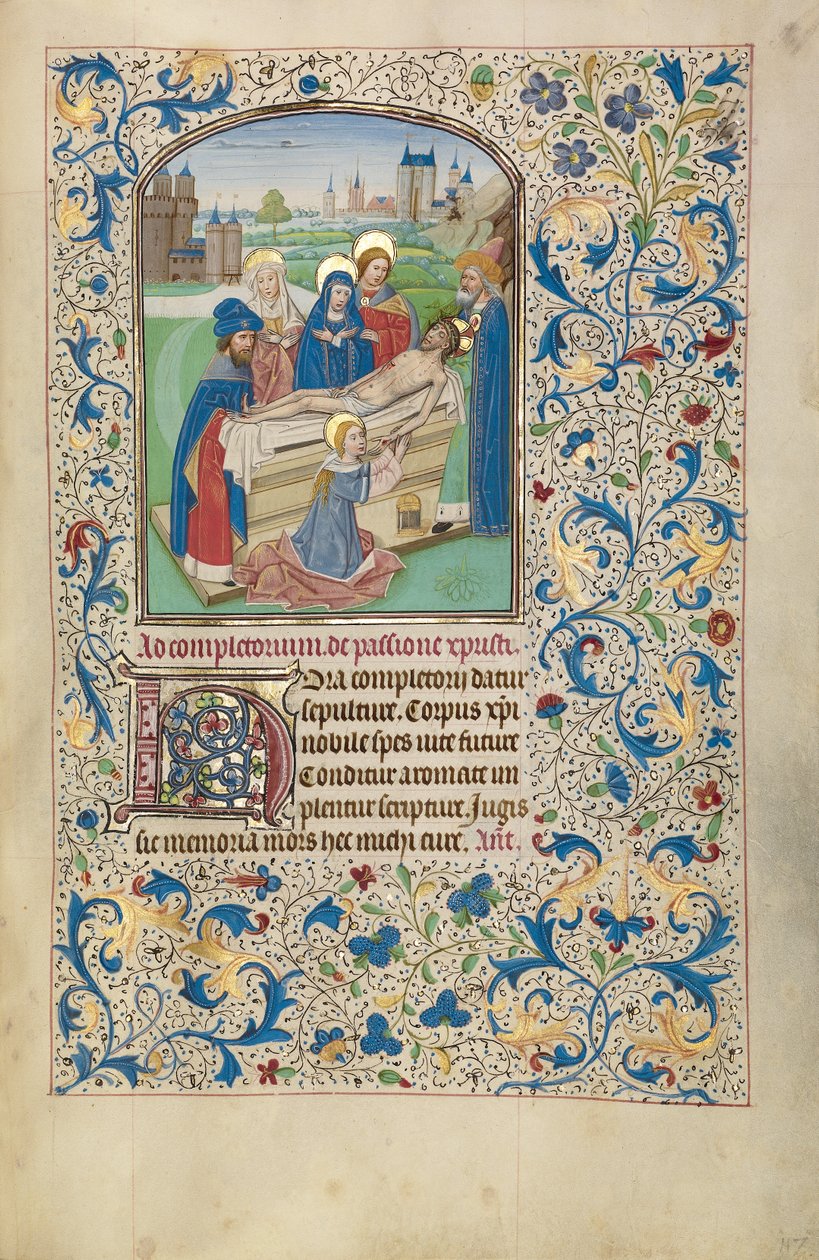 Ad completorium. de passione xpristi.
Hora completorij datur
sepulture. Corpus xpi
nobile spes uite future
Conditur aromate im
plentur scripture. Jugis
sit memoria mors hec michi cure. Ant.
47